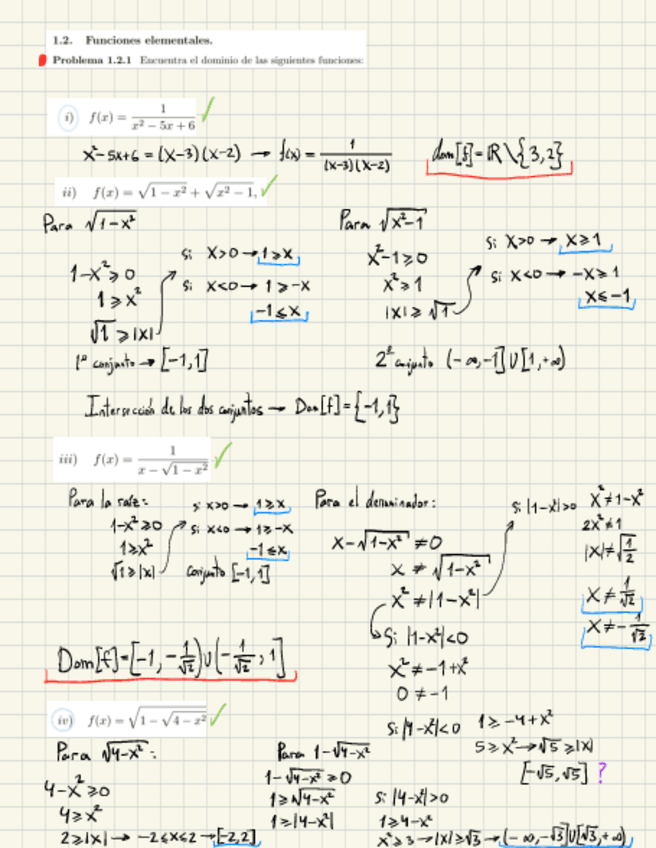 1.2. Funciones elementales.
Problema 1.2.1 Encuentra el dominio de las siguientes funciones:
i) f(x) = 1/(x² − 5x + 6)
x²-5x+6 = (x-3)(x-2) → f(x) = 1/((x-3)(x-2)) dom[f] = ℝ\{3,2}
ii) f(x) = √(1 − x²) + √(x² − 1),
Para √(1-x²)
1-x² ≥ 0
1 ≥ x²
√1 ≥ |x|
Si x>0 → 1 ≥ x
Si x<0 → 1 ≥ -x
-1 ≤ x
1º conjunto → [-1,1]
Para √(x²-1)
x²-1 ≥ 0
x² ≥ 1
|x| ≥ √1
Si x>0 → x ≥ 1
Si x<0 → -x ≥ 1
x ≤ -1
2º conjunto (-∞,-1]U[1,+∞)
Intersección de los dos conjuntos → Dom[f] = {-1,1}
iii) f(x) = 1/(x − √(1 − x²))
Para la raíz:
1-x² ≥ 0
1 ≥ x²
√1 ≥ |x|
Si x>0 → 1 ≥ x
Si x<0 → 1 ≥ -x
-1 ≤ x
conjunto [-1,1]
Para el denominador:
x-√(1-x²) ≠ 0
x ≠ √(1-x²)
x² ≠ |1-x²|
Si |1-x²|<0
x² ≠ -1+x²
0 ≠ -1
Si |1-x²|>0 x² ≠ 1-x²
2x² ≠ 1
|x| ≠ √(1/2)
x ≠ 1/√2
x ≠ -1/√2
Dom[f] = [-1, -1/√2) U (-1/√2, 1]
iv) f(x) = √(1 − √(4 − x²))
Para √(4-x²):
4-x² ≥ 0
4 ≥ x²
2 ≥ |x| → -2 ≤ x ≤ 2 → [-2,2]
Para 1-√(4-x²)
1-√(4-x²) ≥ 0
1 ≥ √(4-x²)
1 ≥ |4-x²|
Si |4-x²|<0 1 ≥ -4+x²
5 ≥ x² → √5 ≥ |x|
[-√5,√5] ?
Si |4-x²|>0
1 ≥ 4-x²
x² ≥ 3 → |x| ≥ √3 → (-∞,-√3]U[√3,+∞)